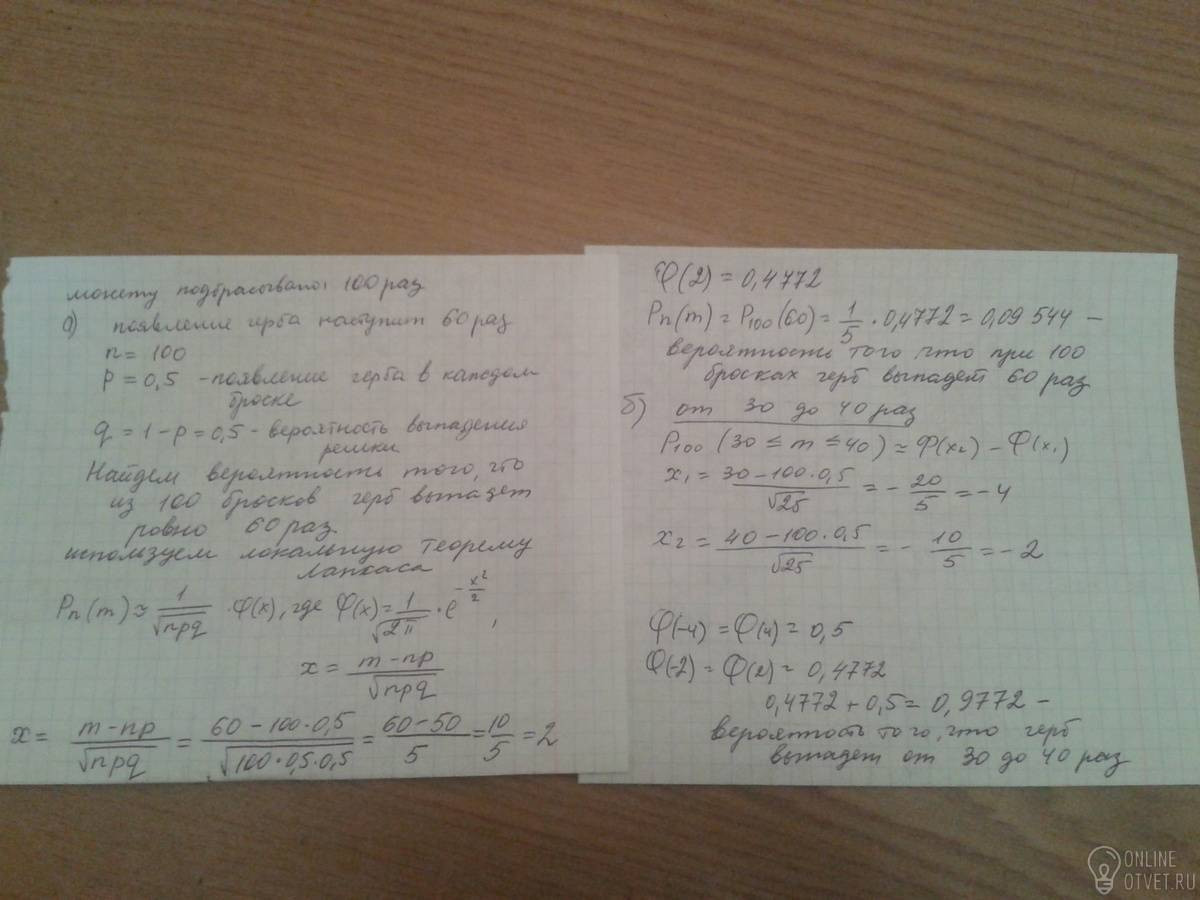 монету подбрасывано: 100 раз
а) появление герба наступит 60 раз
n = 100
p = 0,5 - появление герба в каждом
броске
q = 1 - p = 0,5 - вероятность выпадения
решки
Найдем вероятность того, что
из 100 бросков герб выпадет
ровно 60 раз.
используем локальную теорему
Лапласа
Pn(m) ≈ 1/√npq · φ(x), где φ(x) = 1/√2π · e^(-x²/2),
x = (m - np)/√npq
x = (m - np)/√npq = (60 - 100·0,5)/√(100·0,5·0,5) = (60 - 50)/5 = 10/5 = 2
φ(2) = 0,4772
Pn(m) = P100(60) = 1/5 · 0,4772 = 0,09544 —
вероятность того что при 100
бросках герб выпадет 60 раз
б) от 30 до 40 раз
P100 (30 ≤ m ≤ 40) ≈ Φ(x₂) - Φ(x₁)
x₁ = (30 - 100·0,5)/√25 = - 20/5 = -4
x₂ = (40 - 100·0,5)/√25 = - 10/5 = -2
φ(-4) = φ(4) = 0,5
φ(-2) = φ(2) = 0,4772
0,4772 + 0,5 = 0,9772 —
вероятность того, что герб
выпадет от 30 до 40 раз
ONLINE
OTVET.RU